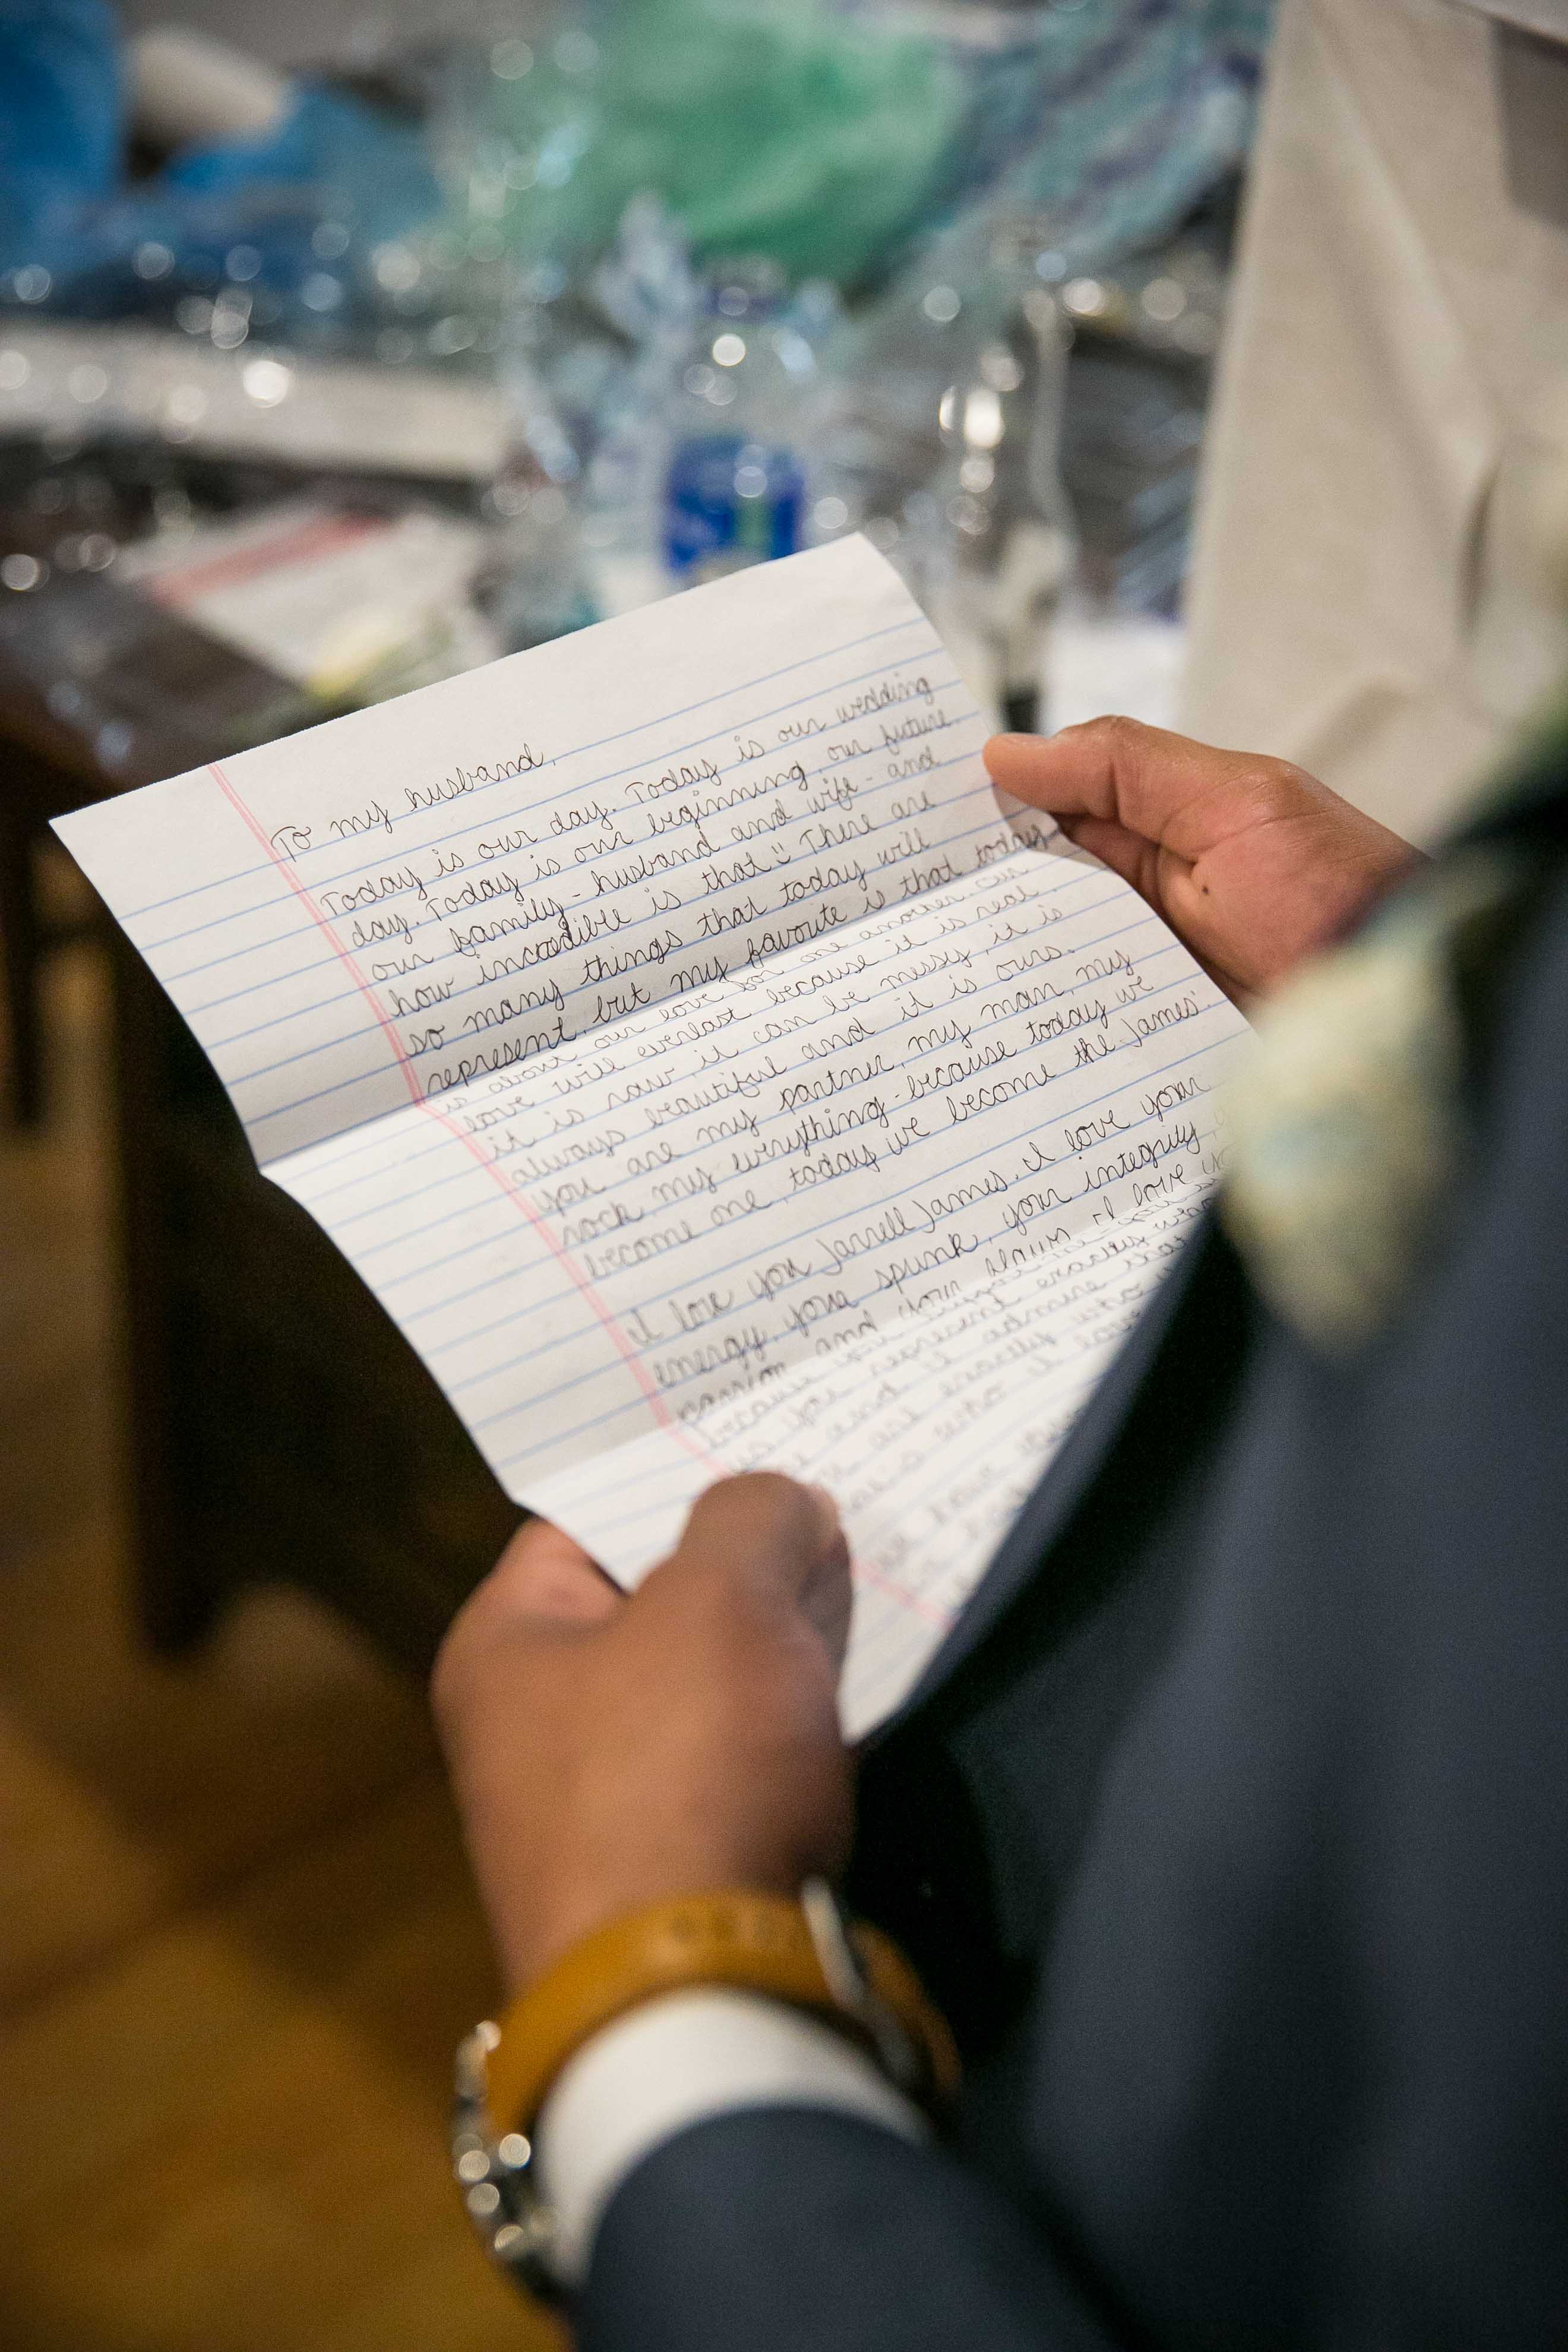 To my husband,
Today is our day. Today is our wedding
day. Today is our beginning our future.
our family - husband and wife - and
how incredible is that ! There are
so many things that today will
represent, but my favorite is that today
is about our love for one another. Our
love will everlast because it is real.
it is raw, it can be messy, it is
always beautiful and it is ours.
you are my partner, my man, my
rock, my everything - because today we
become one, today we become the James'.
I love you Jarrell James. I love your
energy, your spunk, your integrity,
passion and your I love
because
you represent exactly
and I admire that
are exactly who
who I